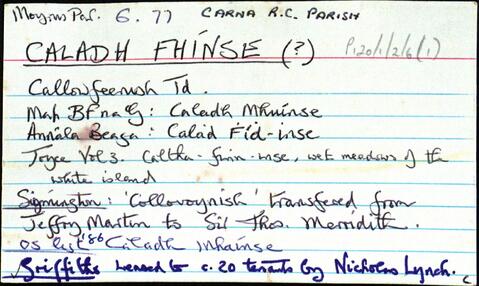 Moyrus Par. 6.77 CARNA R.C. PARISH
CALADH FHÍNSE (?) P120/1/2/6(1)
Callowfeenish Td.
Map BF na G: Caladh Mhuínse
Annála Beaga: Calad Fíd-inse
Joyce Vol 3. Caltha-finn-inse, wet meadows of the
white island
Sigmington: 'Collovoynish' transfered from
Jeffry Martin to Sir Thos. Merridith.
OS list '86 Caladh Mhaínse
Griffiths leased to c. 20 tenants by Nicholas Lynch.
c